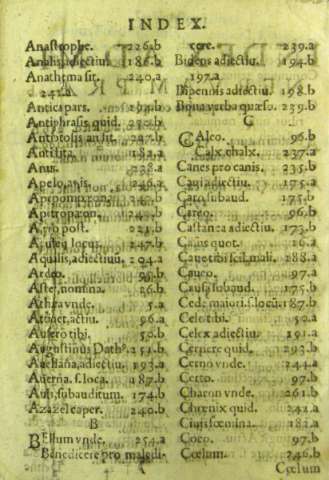 INDEX.
Anastrophe. 226.b
Analis, adiectiuū. 186.b
Anathema sit. 240.a
241.a
Antica pars. 194.b
Antiphrasis quid. 230.b
an sit. 227.b
Antistita. 182.a
Anus. 238.a
Apelo,
Apropompæon.
Apitropæon.
Apro post. 221.b
Apuleij locus. 247.b
Aqualis, adiectiuū, 204.a
Ardeo.
Aster, nomina. 26.b
Athra vnde. 5.a
Attinet, actiu. 96.a
Aufero tibi. 50.b
Augustinus Dathꝰ. 251.b
Auellana, adiectiu. 193.a
Auerna. s. loca. 187.b
Auli, subauditum. 174.b
Azazel caper. 240.b
B
BEllum vnde. 254.a
Benedicere pro maledi-
cere. 239.a
Bidens adiectiu. 194.b
197.a
Bipennis adiectiu. 198.b
Bona verba quæso. 239.b
C
CAlco. 96.b
Calx. chalx. 237.a
Canes pro canis. 235.b
Capi adiectiu. 175.a
Caro, subaud. 175.b
Careo. 96.b
Castanea adiectiu. 173.b
Casus quot. 16.a
Caue tibi scil. mali. 288.a
Caueo. 97.a
Causa subaud. 175.b
Cede maiori. s. locū. 187.b
Celo tibi. 50.a
Celex adiectiu. 191.a
Cernere quid. 293.b
Cerno vnde. 244.a
Certo. 97.b
Charon vnde. 261.b
Chœnix quid. 242.a
Ciuis fœmina. 182.a
Coco. 97.b
Cœlum. 246.b
Cœlum